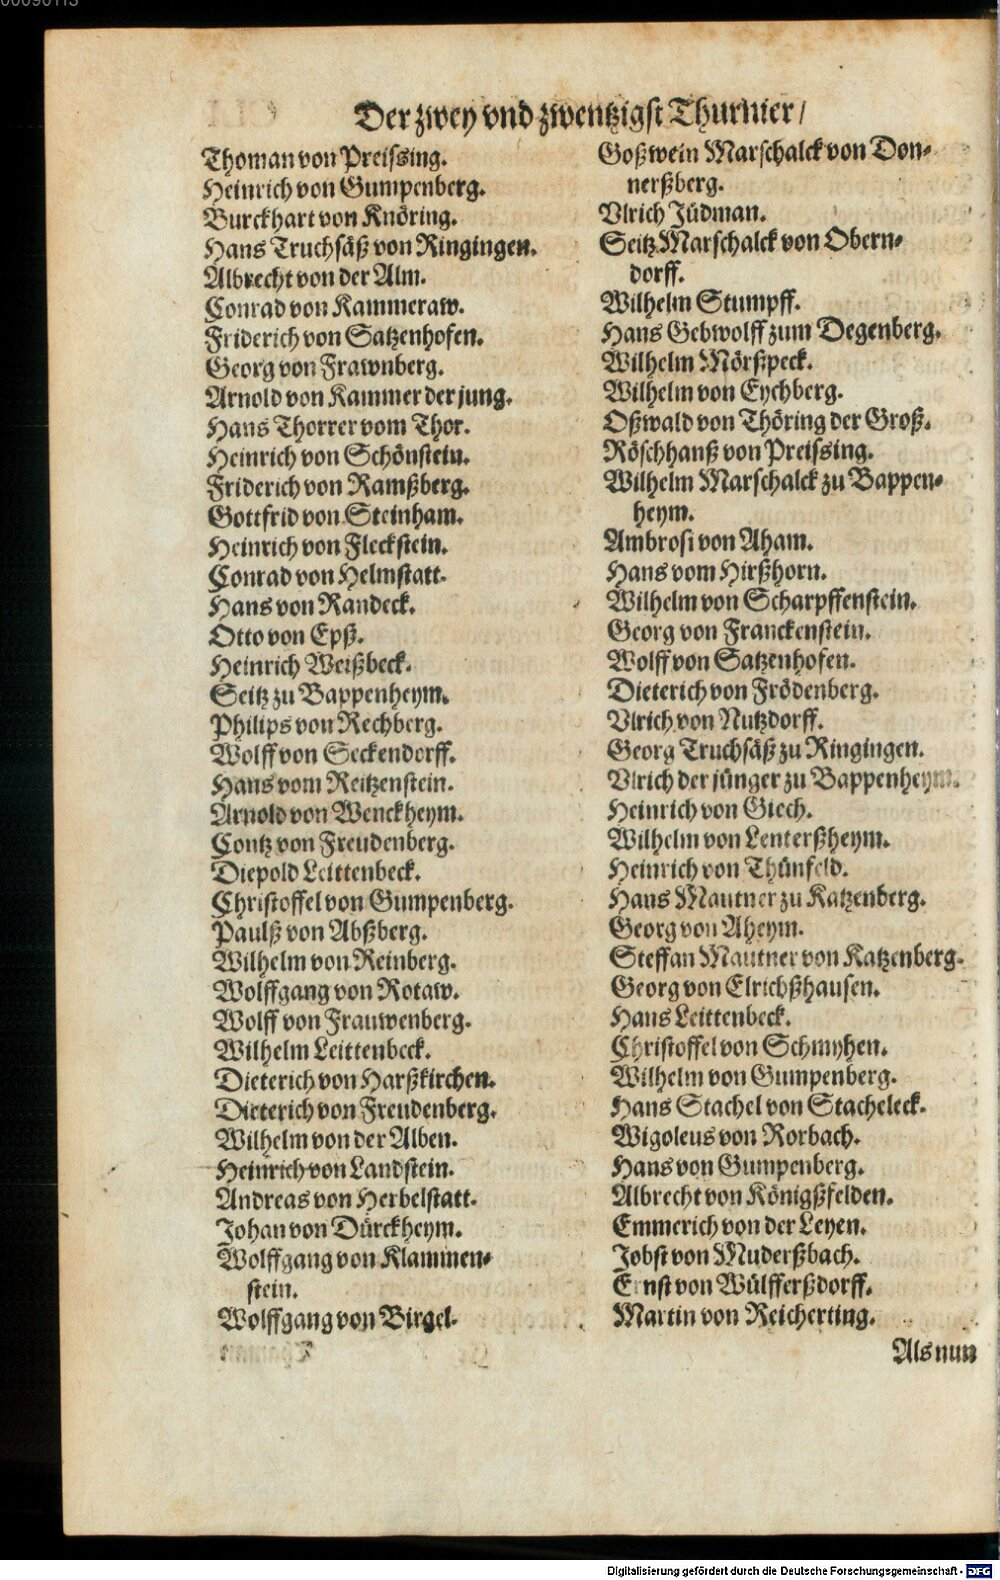 Der zwey vnd zwentzigst Thurnier /
Thoman von Preissing.
Heinrich von Gumpenberg.
Burckhart von Knöring.
Hans Truchsäß von Ringingen.
Albrecht von der Alm.
Conrad von Kammeraw.
Friderich von Satzenhofen.
Georg von Frawnberg.
Arnold von Kammer der jung.
Hans Thorrer vom Thor.
Heinrich von Schönstein.
Friderich von Ramßberg.
Gottfrid von Steinham.
Heinrich von Fleckstein.
Conrad von Helmstatt.
Hans von Randeck.
Otto von Epß.
Heinrich Weißbeck.
Seitz zu Bappenheym.
Philips von Rechberg.
Wolff von Seckendorff.
Hans vom Reitzenstein.
Arnold von Wenckheym.
Contz von Freudenberg.
Diepold Leittenbeck.
Christoffel von Gumpenberg.
Paulß von Abßberg.
Wilhelm von Reinberg.
Wolffgang von Rotaw.
Wolff von Frauwenberg.
Wilhelm Leittenbeck.
Dieterich von Harßkirchen.
Dieterich von Freudenberg.
Wilhelm von der Alben.
Heinrich von Landstein.
Andreas von Herbelstatt.
Johan von Dürckheym.
Wolffgang von Klammen-
stein.
Wolffgang von Birgel.
Goßwein Marschalck von Don-
nerßberg.
Vlrich Jüdman.
Seitz Marschalck von Obern-
dorff.
Wilhelm Stumpff.
Hans Gebwolff zum Degenberg.
Wilhelm Mörßpeck.
Wilhelm von Eychberg.
Oßwald von Thöring der Groß.
Röschhanß von Preissing.
Wilhelm Marschalck zu Bappen-
heym.
Ambrosi von Aham.
Hans vom Hirßhorn.
Wilhelm von Scharpffenstein.
Georg von Franckenstein.
Wolff von Satzenhofen.
Dieterich von Frödenberg.
Vlrich von Nutzdorff.
Georg Truchsäß zu Ringingen.
Vlrich der jünger zu Bappenheym.
Heinrich von Giech.
Wilhelm von Lenterßheym.
Heinrich von Thünfeld.
Hans Mautner zu Katzenberg.
Georg von Aheym.
Steffan Mautner von Katzenberg.
Georg von Elrichßhausen.
Hans Leittenbeck.
Christoffel von Schmyhen.
Wilhelm von Gumpenberg.
Hans Stachel von Stacheleck.
Wigoleus von Rorbach.
Hans von Gumpenberg.
Albrecht von Königßfelden.
Emmerich von der Leyen.
Jobst von Muderßbach.
Ernst von Wülfferßdorff.
Martin von Reicherting.
Als nun
Digitalisierung gefördert durch die Deutsche Forschungsgemeinschaft - DFG